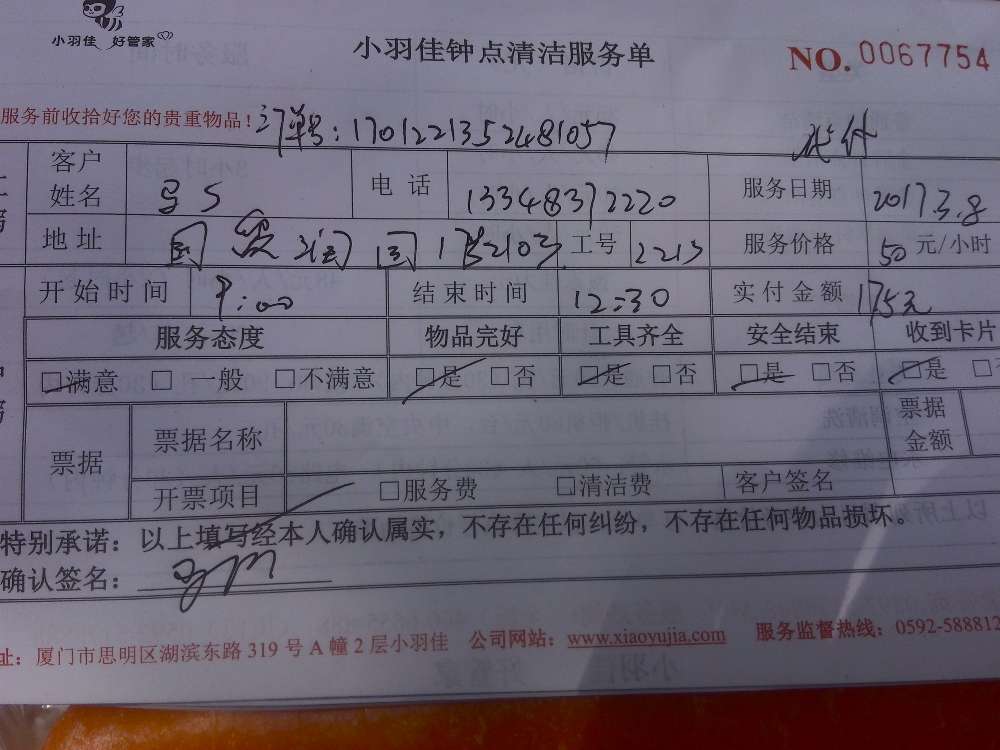 小羽佳 好管家
小羽佳钟点清洁服务单
NO. 0067754
服务前收拾好您的贵重物品! 订单号:1701221352481057
客户姓名 电话 13348372220 服务日期 2017.3.8
地址 国贸 工号 2213 服务价格 50元/小时
开始时间 9:00 结束时间 12:30 实付金额 175元
服务态度 物品完好 工具齐全 安全结束 收到卡片
□满意 □一般 □不满意 □是 □否 □是 □否 □是 □否 □是
票据 票据名称 票据金额
开票项目 □服务费 □清洁费 客户签名
特别承诺:以上填写经本人确认属实,不存在任何纠纷,不存在任何物品损坏。
确认签名:
址:厦门市思明区湖滨东路319号A幢2层小羽佳 公司网站:www.xiaoyujia.com 服务监督热线:0592-588812